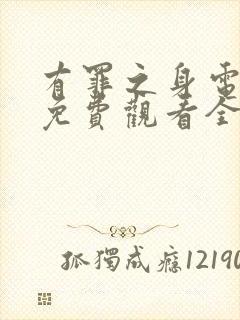 有罪之身電
免費觀看全
孤獨成癮12190